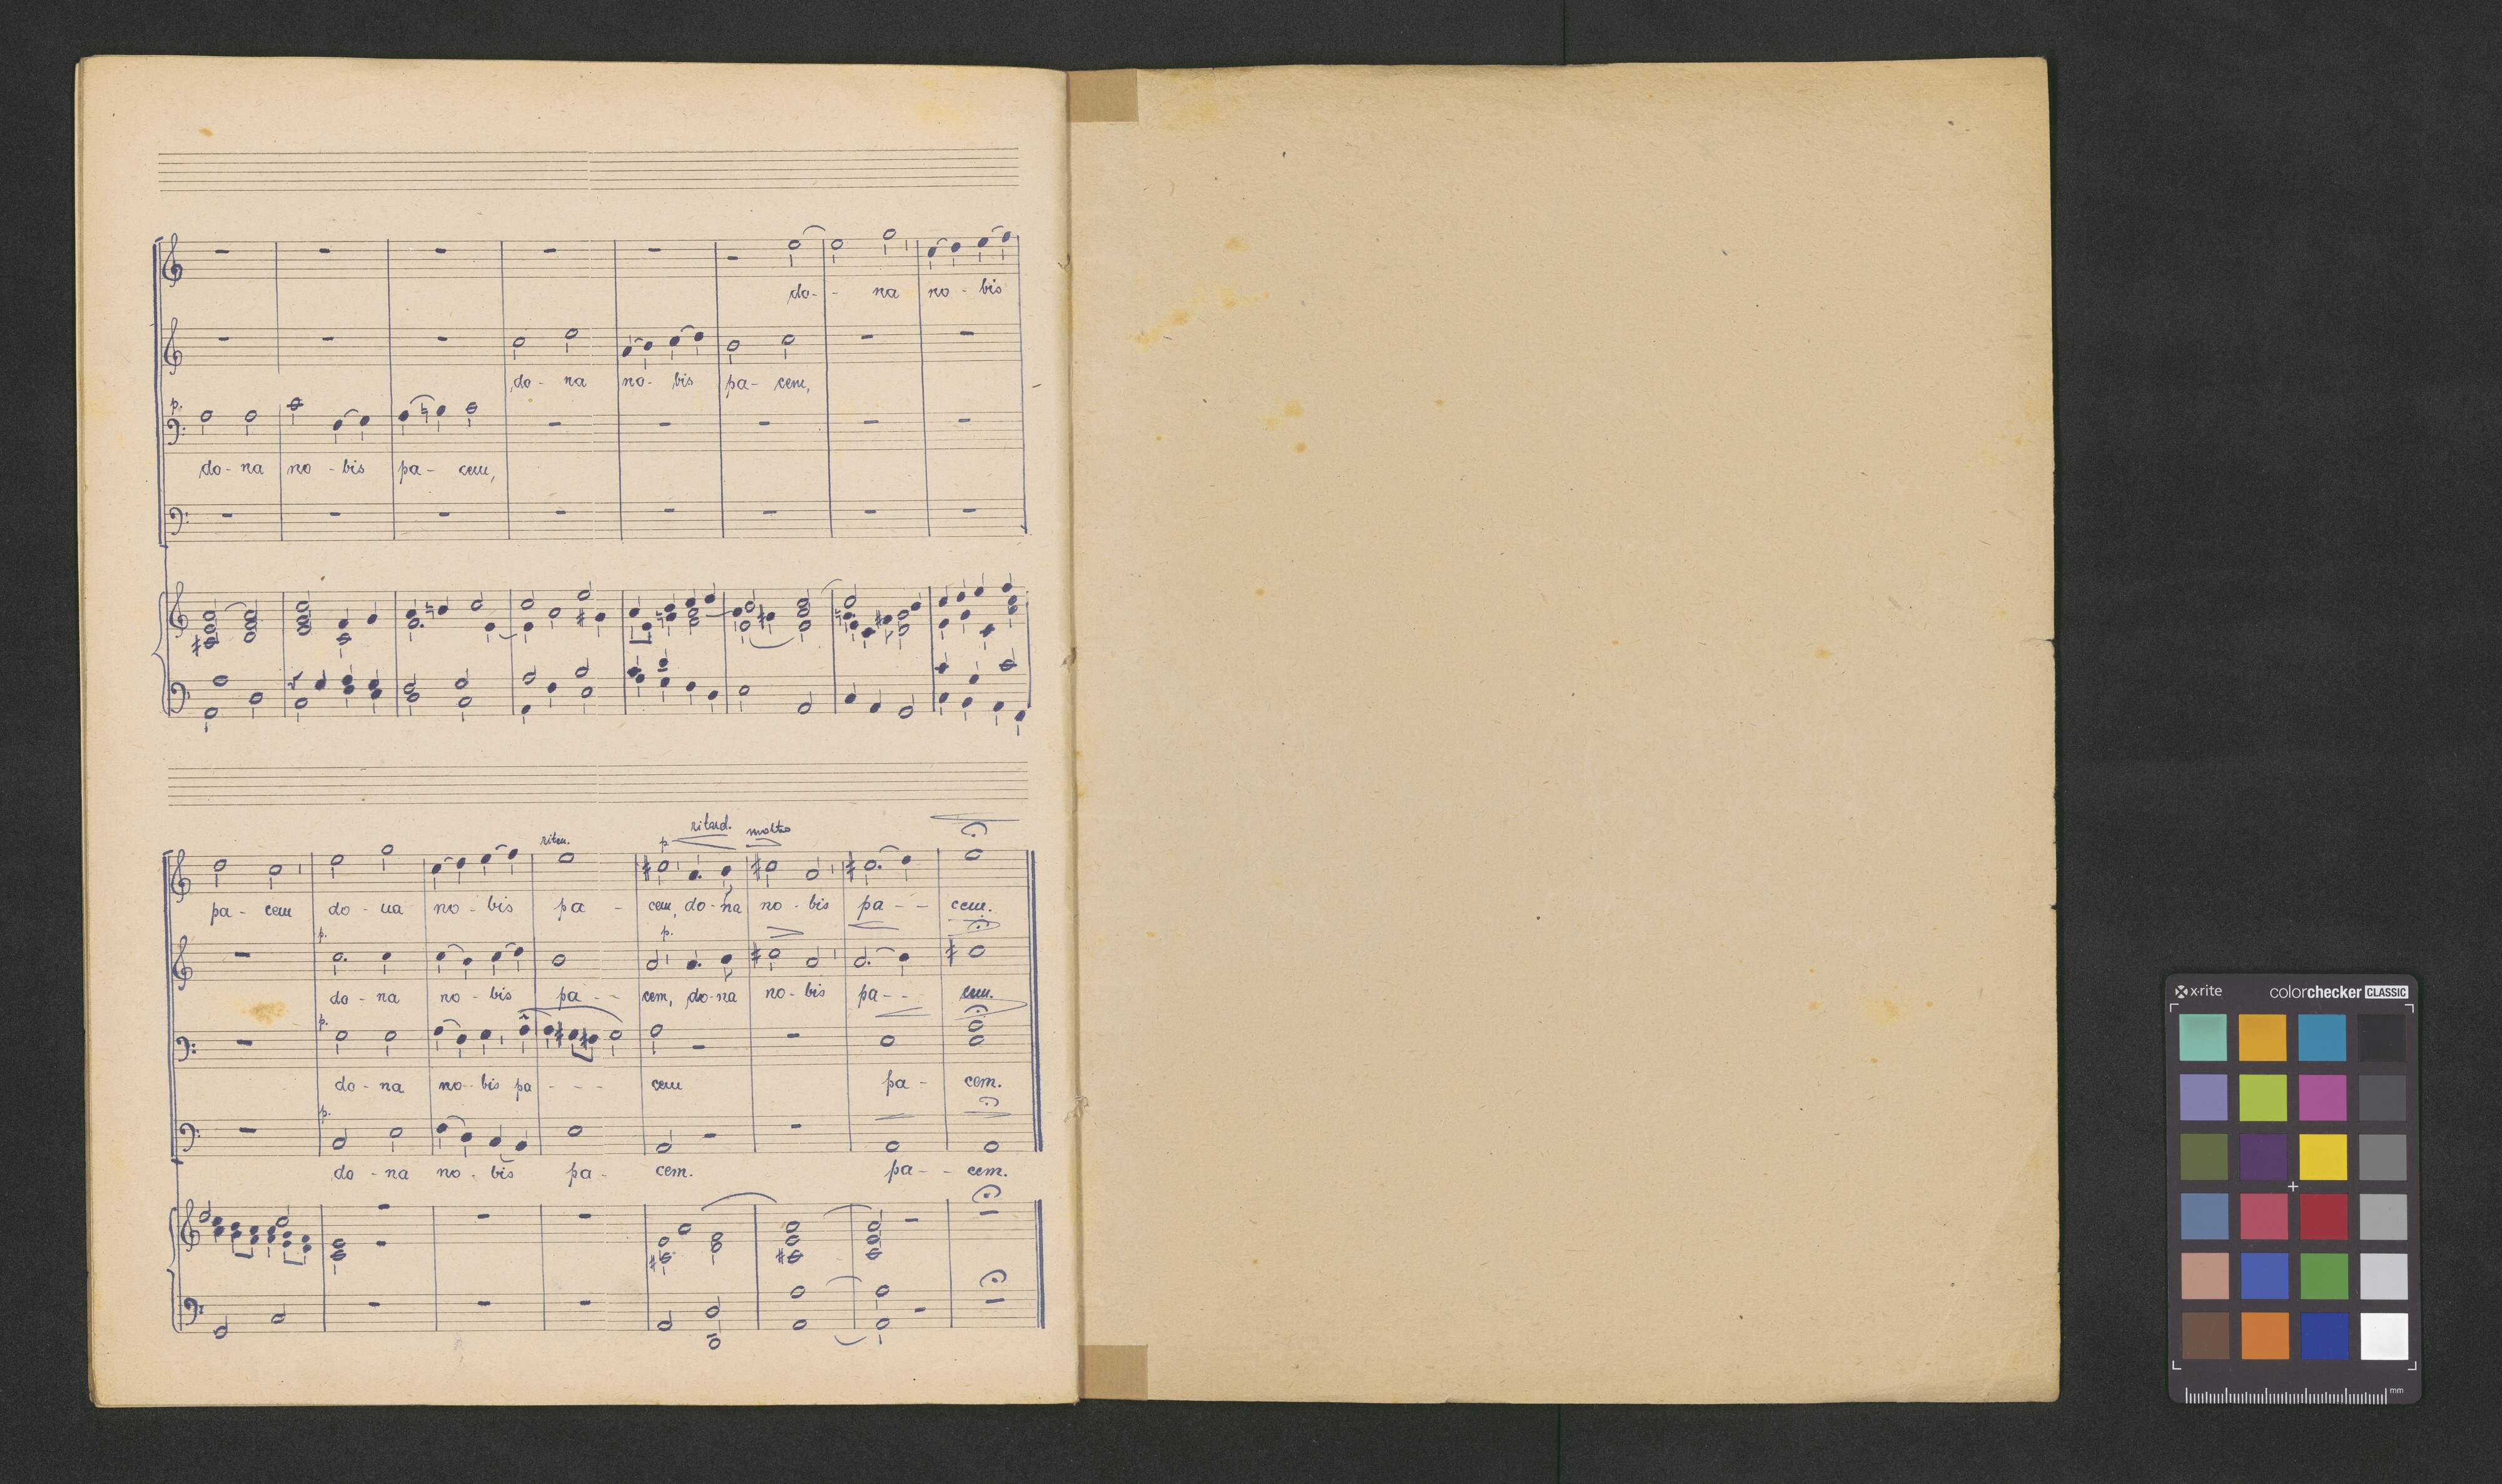 do - - na no - bis
do - na no - bis pa - cem,
p.
do - na no - bis pa - cem,
ritard. molto
riten. p.
pa - cem do - na no - bis pa - cem, do - na no - bis pa - - cem.
p. p.
do - na no - bis pa - - cem, do - na no - bis pa - - cem.
p.
do - na no - bis pa - - - cem pa - cem.
p.
do - na no - bis pa - cem. pa - - cem.
x·rite colorchecker CLASSIC
mm